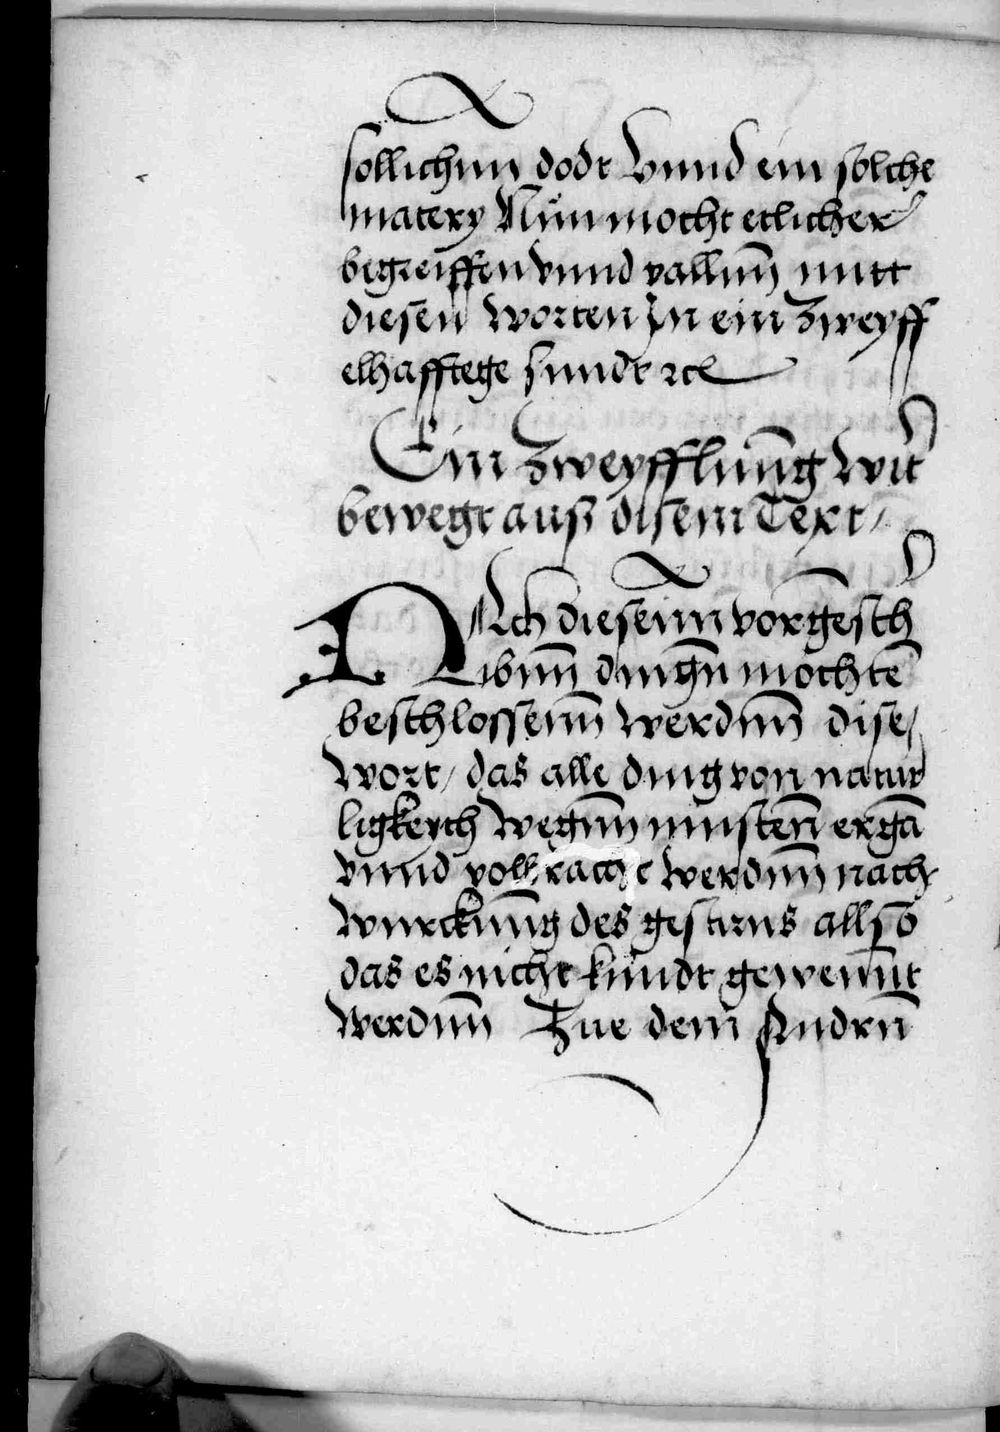 sollichnn dodt Vnnd ein solche
matery Nün mocht etlicher
begreiffen vnnd vallnn mitt
diesen worten Jn ein zweyff
elhafftege sundt ꝛcͣ
Ein zweyfflung wirt
bewegt auß disem Text /
Nach diesenn vorgesch
ribnn dingn mochte
beschlossenn werdnn dise
wort / das alle ding von natur
ligkeych wegnn musten ergā
vnnd vollbracht werdnn nach
wurckung des gestirns allso
das es nicht kundt gewennt
werdnn Zue dem Andrn